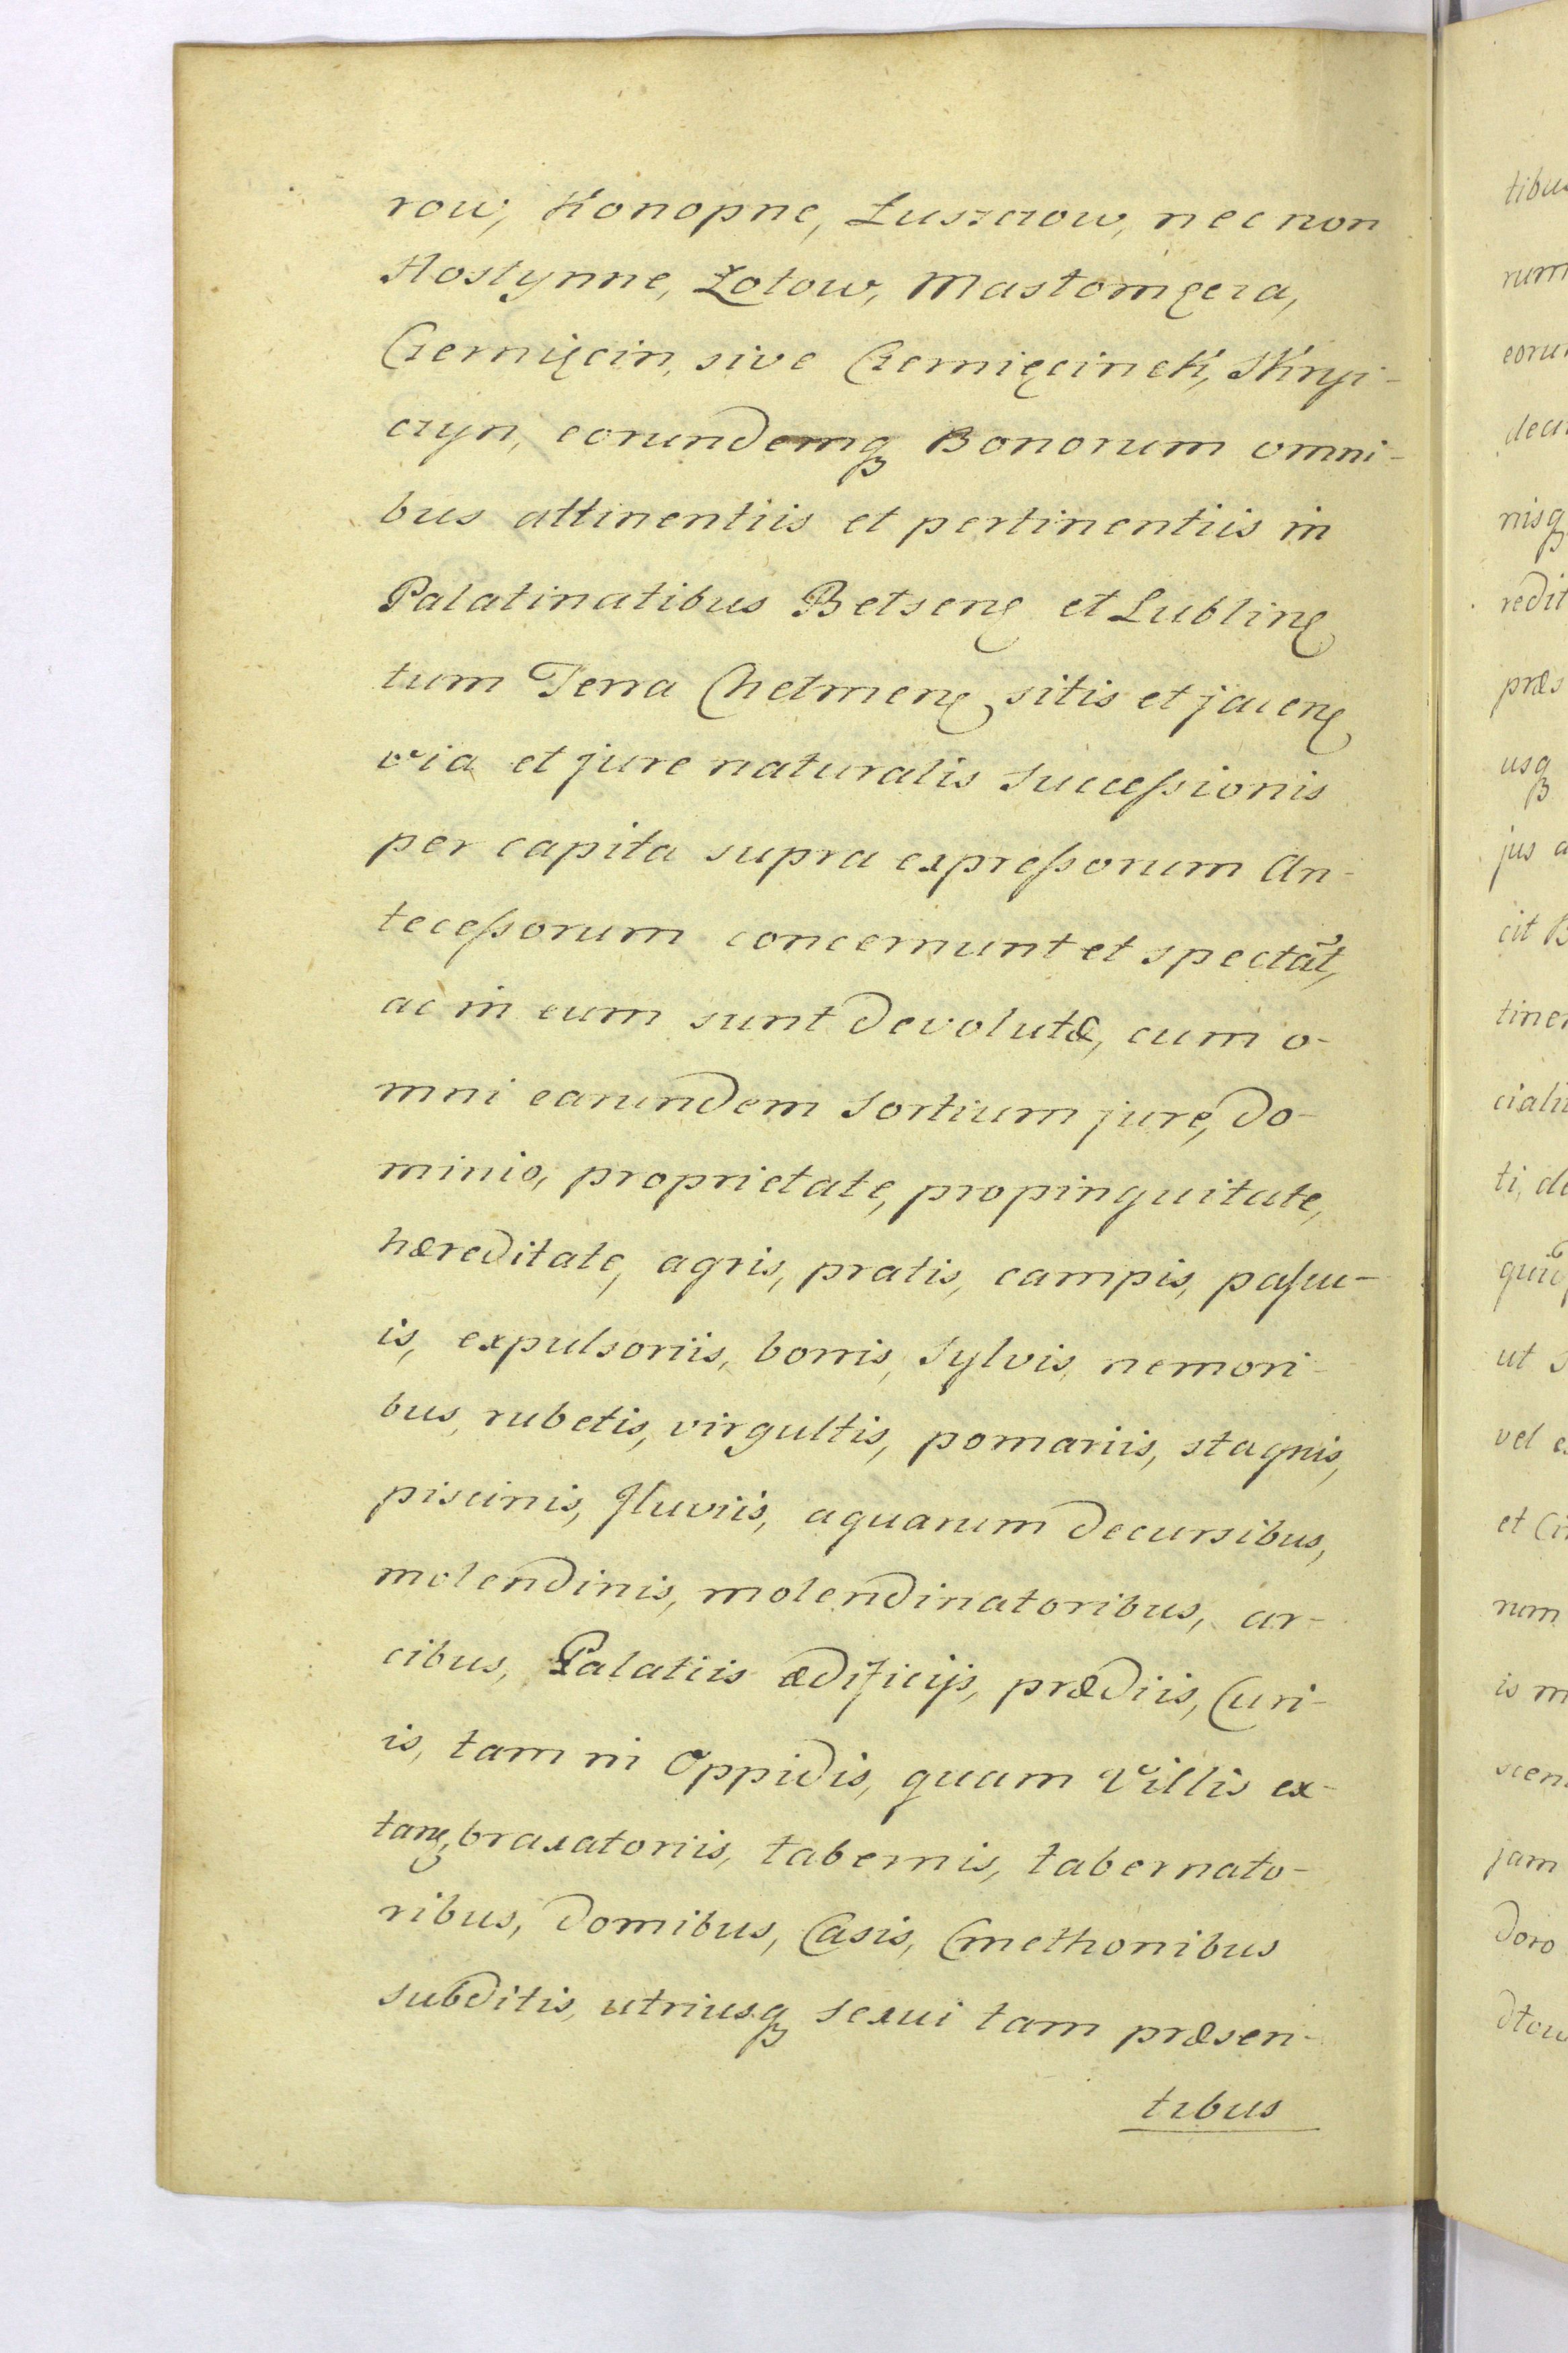 row, Konopne, Łuszczow, nec non
Hostynne, Łotow, Masłomęcza,
Czernięcin, sive Czernięcinek, Skryi-
czyn, eorundemq3 Bonorum omni-
bus attinentiis et pertinentiis in
Palatinatibus Bełsenȩ et Lublinȩ
tum Terra Chełmenȩ sitis et jacenȩ
via et jure naturalis Successionis
per capita supra expressorum An-
tecessorum concernunt et spectāt,
ac in eum sunt devolutæ, cum o-
mni earundem Sortium jure, do-
minio, proprietate, propinquitate,
hæreditate, agris, pratis, campis, pascu-
is, expulsoriis, borris, Sylvis, nemori-
bus, rubetis, virgultis, pomariis, stagnis,
piscinis, fluviis, aquarum decursibus,
molendinis, molendinatoribus, ar-
cibus, Palatiis ædificijs, prædiis, Curi-
is, tam in Oppidis, quam Villis ex-
tanȩ, braxatoriis, tabernis, tabernato-
ribus, domibus, Casis, Cmethonibus
subditis, utriusq3 sexui tam præsen-
tibus
tibus
rum
nisq3
redit
præs
usq3
jus a
cit B
ti, de
vel
rum
is m
jam
doro